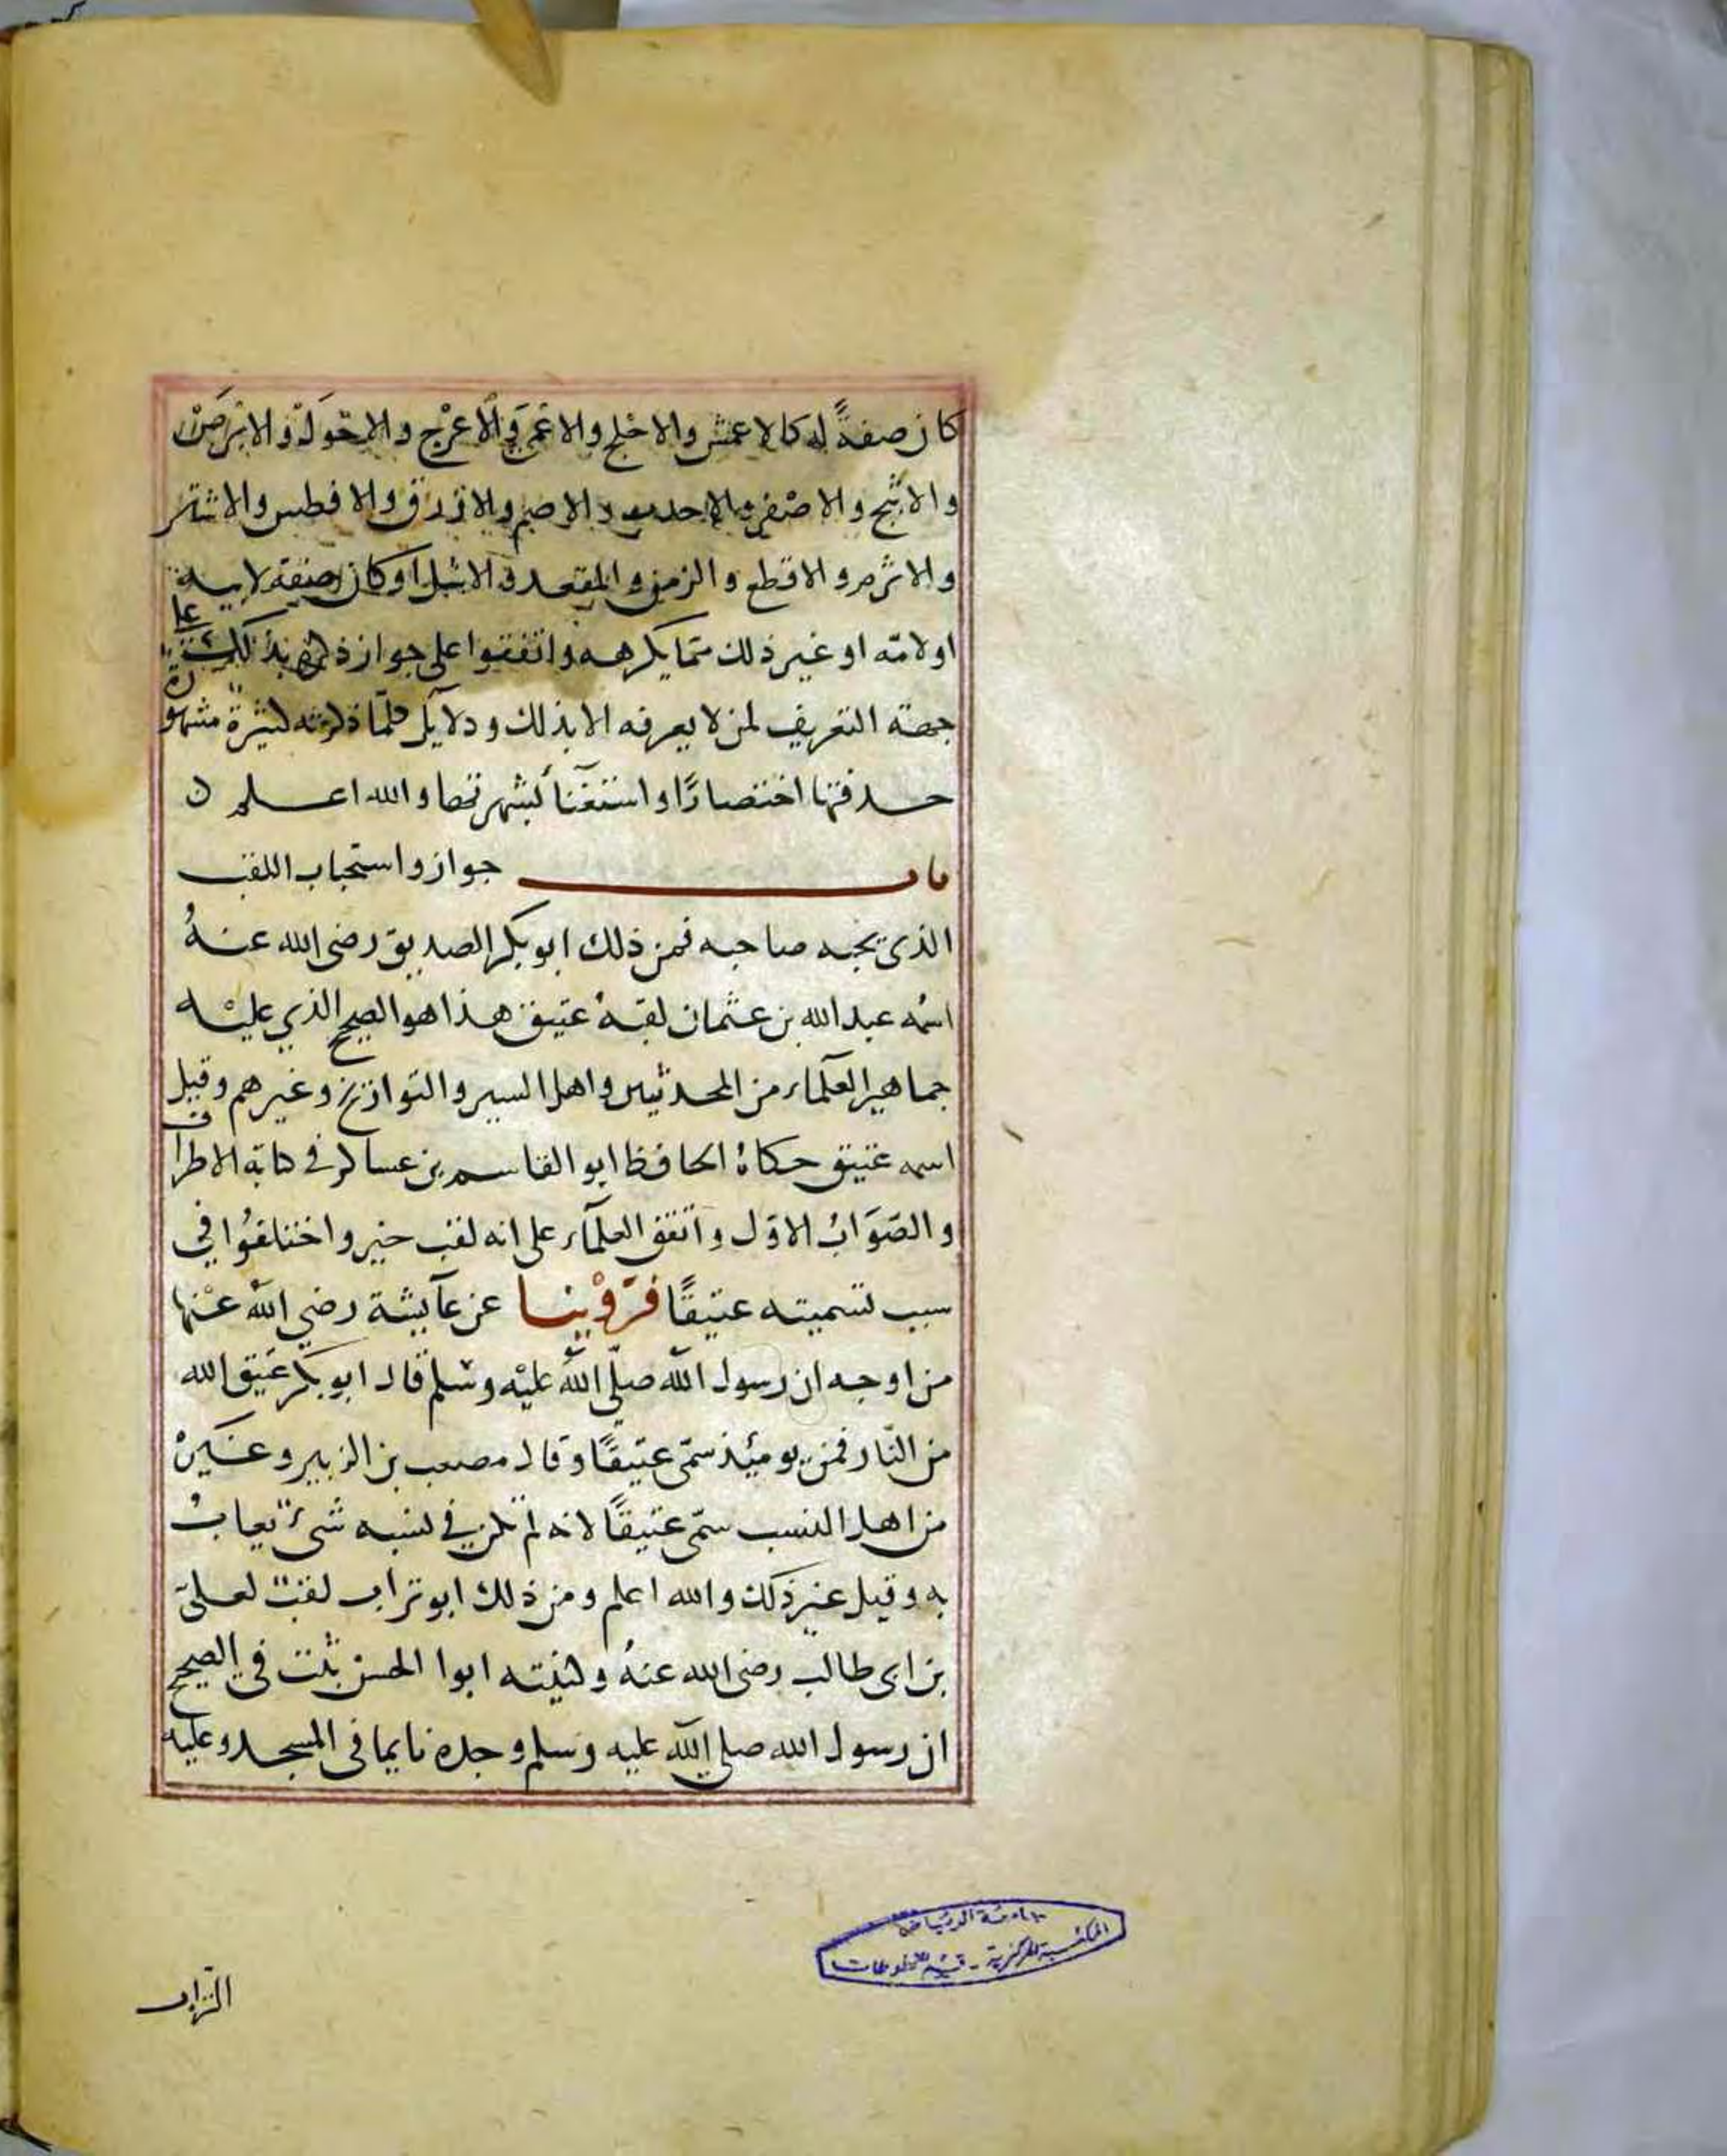 كان صفةً له كالاعمش والاجلح والاعمى والاعرج والاحول والابرص
والاثبج والاصفر والاحدب والاصم والازرق والافطس والاشتر
والاثرم والاقطع والزمن والمقعد والاشل او كان صفة لابيه
اولامّه او غير ذلك ممّا يكرهه واتفقوا على جواز ذكره بذلك على
جهة التعريف لمن لا يعرفه الا بذلك ودلايل كلّما ذكرته كثيرة مشهورة
حذفتها اختصارًا واستغنآءً بشهرتها والله اعلم ن
باب جواز واستحباب اللقب
الذى يحبه صاحبه فمن ذلك ابو بكر الصديق رضى الله عنهُ
اسمُه عبد الله بن عثمان لقبهُ عتيق هذا هو الصحيح الذي عليْه
جماهير العلمآء من المحدثين واهل السير والتواريخ وغيرهم وقيل
اسمه عتيق حكاهُ الحافظ ابو القاسم بن عساكر في كتابه الاطراف
والصّوَابُ الاوّل واتفق العلمآء على انه لقب خير واختلفُوا في
سبب تسميته عتيقًا فرَوْينا عن عآيشة رضي الله عنْها
من اوجه ان رسول الله صلّى الله عليْه وسلم قال ابو بكر عتيق الله
من النّار فمن يومئِذ سمّى عتيقًا وقال مصعب بن الزبير وغيرهُ
من اهل النسب سمّى عتيقًا لانه لم يكن في نسبه شىءٌ يعابُ
به وقيل غير ذلك والله اعلم ومن ذلك ابو تراب لقبٌ لعلىّ
بن ابى طالب رضى الله عنهُ وكنيته ابوا الحسن ثبت في الصحيح
ان رسول الله صلي الله عليه وسلم وجده نايما في المسجد وعليه
التراب
جامعة الرياض
المكتبة المركزية - قسم المخطوطات